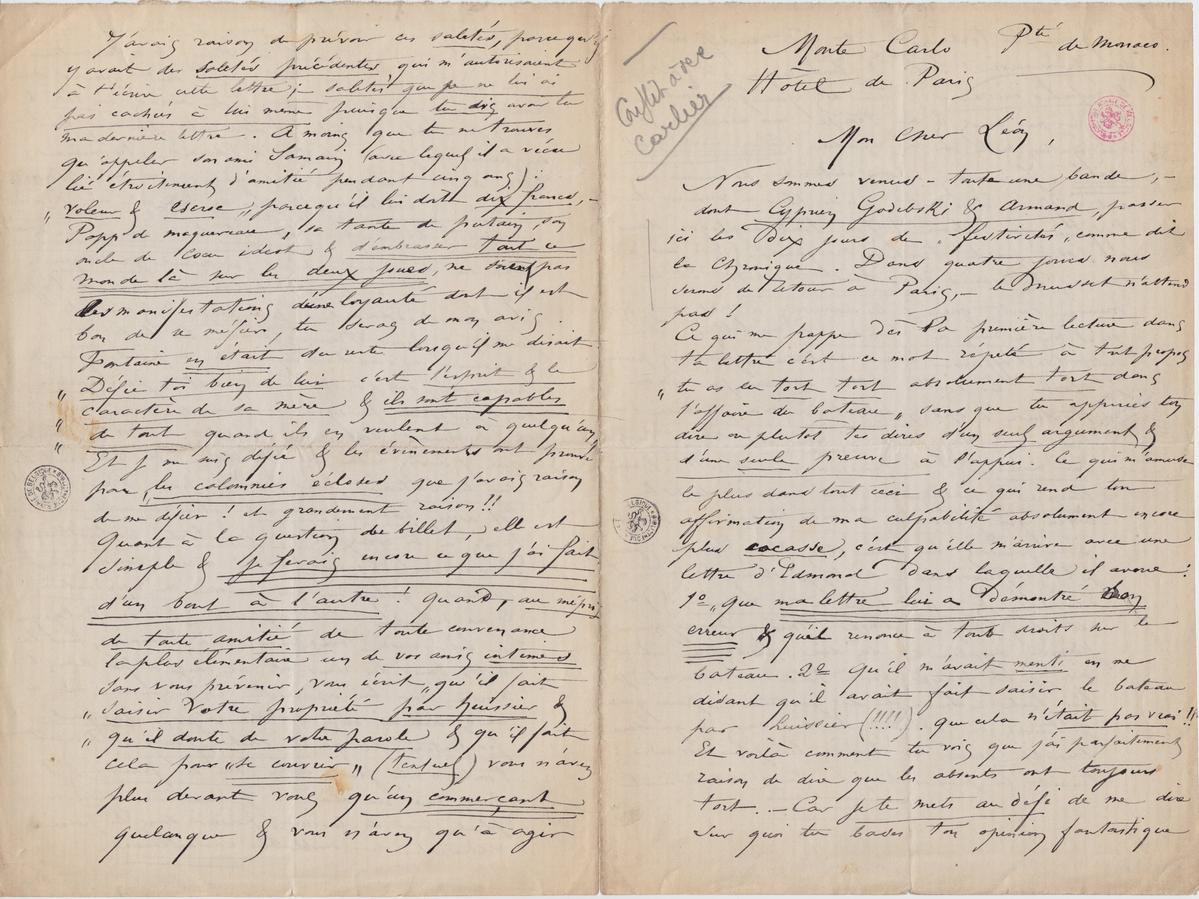 Monte Carlo Pté de Monaco.
Hôtel de Paris
Conflit avec
Carlier
Mon Cher Léon,
Nous sommes venus – toute une bande, –
dont Cyprien Godebski & Armand, passer
ici les dix jours de festivités, comme dit
la Chronique. Dans quatre jours nous
serons de retour à Paris, – le Musset n'attend
pas!
Ce qui me frappe dès la première lecture dans
ta lettre c'est ce mot répété à tout propos
"tu as eu tort tort absolument tort dans
l'affaire du bateau„ sans que tu appuies ton
dire ou plutot tes dires d'un seul argument &
d'une seule preuve à l'appui. Ce qui m'amuse
le plus dans tout ceci & ce qui rend ton
affirmation de ma culpabilité absolument encore
plus cocasse, c'est qu'elle m'arrive avec une
lettre d'Edmond dans laquelle il avoue:
1º „que ma lettre lui a démontré son
erreur & qu'il renonce à toute droits sur le
bateau. 2º qu'il m'avait menti en me
disant qu'il avait fait saisir le bateau
par huissier (!!!!). que cela n'était pas vrai!!
Et voilà comment tu vois que j'ai parfaitement
raison de dire que les absents ont toujours
tort. – Car je te mets au défi de me dire
sur quoi tu bases ton opinion fantastique
J'avais raison de prévoir ces saletés, parce qu'il
y avait des saletés précédentes qui m'autorisaient
à t'écrire cette lettre; saletés que je ne lui ai
pas cachées à lui même puisque tu dis avoir lu
ma dernière lettre. A moins que tu ne trouves
qu'appeler son ami Samain (avec lequel il a vécu
lié étroitement d'amitié pendant cinq ans):
"voleur & escroc„ parce qu'il lui doit dix francs, –
Popp de maquereau, sa tante de putain, son
oncle de Coen idiot & d'embrasser tout ce
monde là sur les deux joues, ne soient pas
les manifestations d'une loyauté dont il est
bon de se méfier, tu seras de mon avis.
Fontaine en était du reste lorsqu'il me disait
"Défie toi bien de lui c'est l'esprit & le
"caractère de sa mère & ils sont capables
"de tout quand ils en veulent à quelqu'un!
Et je me suis défié & les évènements ont prouvé
par les calomnies écloses que j'avais raison
de me défier! et grandement raison!!
Quant à la question de billet, elle est
simple & je ferais encore ce que j'ai fait
d'un bout à l'autre! Quand, au mépris
de toute amitié de toute convenance
la plus élémentaire un de vos amis intimes
sans vous prévenir, vous écrit „qu'il fait
"saisir votre propriété par huissier &
"qu'il doute de votre parole & qu'il fait
cela pour „se couvrir„ (textuel) vous n'avez
plus devant vous qu'un commerçant
quelconque & vous n'avez qu'à agir